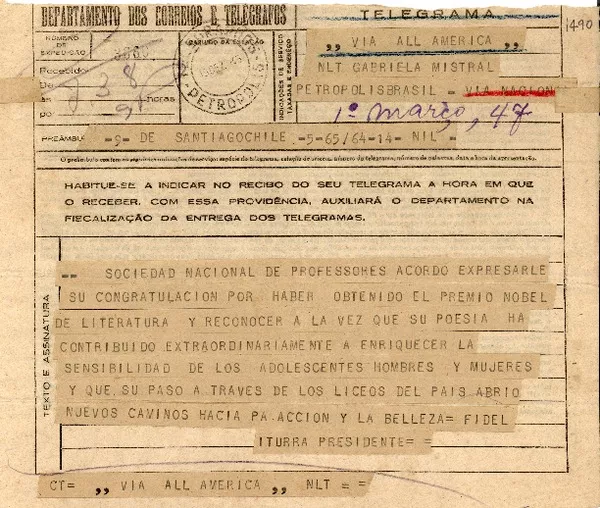 DEPARTAMENTO DOS CORREIOS E TELEGRAFOS
TELEGRAMA
1490
NÚMERO DE EXPEDIÇÃO
CARIMBO DA ESTAÇÃO
INDICAÇÕES DE SERVIÇO TAXADAS E ENDEREÇO
Recebido:
De
às horas
por
PETROPOLIS
„ VIA ALL AMERICA „
NLT GABRIELA MISTRAL
PETROPOLISBRASIL = VIA NACION
1º março, 47
PREÂMBULO -9- DE SANTIAGOCHILE -5-65/64-14- NIL =
HABITUE-SE A INDICAR NO RECIBO DO SEU TELEGRAMA A HORA EM QUE
O RECEBER. COM ESSA PROVIDÊNCIA, AUXILIARÁ O DEPARTAMENTO NA
FISCALIZAÇÃO DA ENTREGA DOS TELEGRAMAS.
TEXTO E ASSINATURA
== SOCIEDAD NACIONAL DE PROFESSORES ACORDO EXPRESARLE
SU CONGRATULACION POR HABER OBTENIDO EL PREMIO NOBEL
DE LITERATURA Y RECONOCER A LA VEZ QUE SU POESIA HA
CONTRIBUIDO EXTRAORDINARIAMENTE A ENRIQUECER LA
SENSIBILIDAD DE LOS ADOLESCENTES HOMBRES Y MUJERES
Y QUE SU PASO A TRAVES DE LOS LICEOS DEL PAIS ABRIO
NUEVOS CAVINOS HACIA PA.ACCION Y LA BELLEZA= FIDEL
ITURRA PRESIDENTE= =
CT= „ VIA ALL AMERICA „ NLT = =